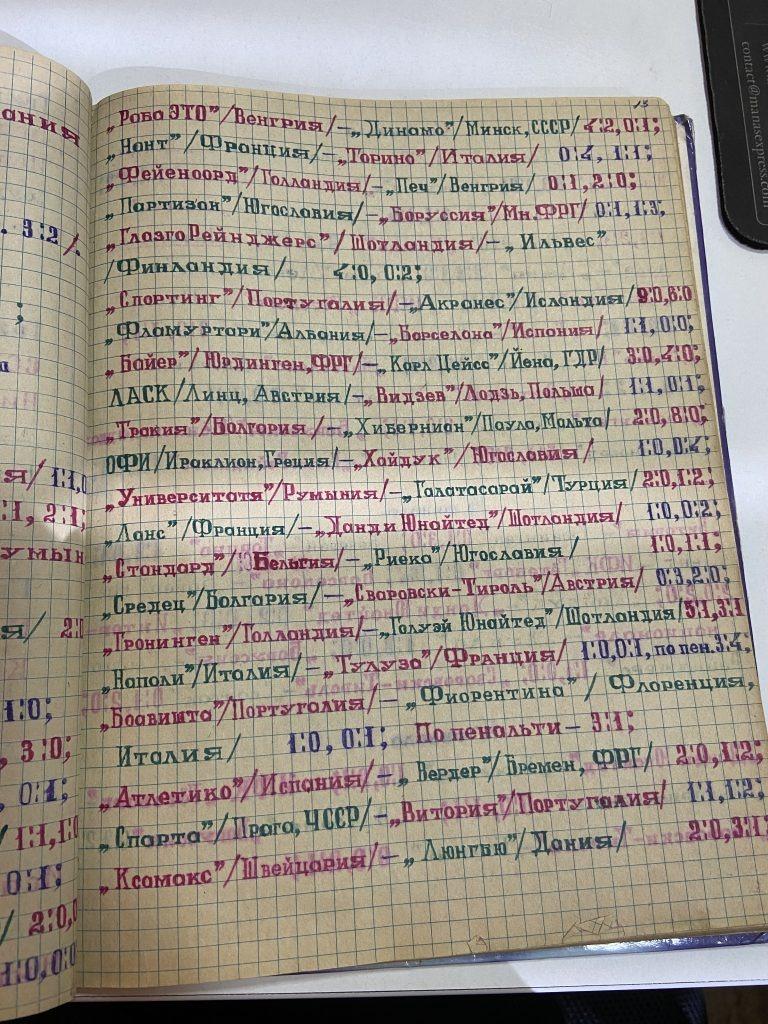 ания
. 3:2/.
;
я/ 1:1,0
:1, 2:1;
умын
я/ 2:0
1:0;
, 3:0;
, 0:1;
/ 1:1,1:0
0:1;
/ 2:0,0
1:0,0:0
13
„Раба ЭТО"/Венгрия/–„Динамо"/Минск, СССР/ 4:2, 0:1;
„Нант"/Франция/–„Торино"/Италия/ 0:4, 1:1;
„Фейеноорд"/Голландия/–„Печ"/Венгрия/ 0:1, 2:0;
„Партизан"/Югославия/–„Боруссия"/Мн.ФРГ/ 0:1, 1:3;
„Глазго Рейнджерс"/Шотландия/–„Ильвес"
/Финландия/ 4:0, 0:2;
„Спортинг"/Португалия/–„Акранес"/Исландия/ 9:0,6:0
„Фламуртари"/Албания/–„Барселона"/Испания/ 1:1, 0:0;
„Байер"/Юрдинген,ФРГ/–„Карл Цейсс"/Йена, ГДР/ 3:0, 4:0;
ЛАСК/Линц, Австрия/–„Видзев"/Лодзь, Польша/ 1:1, 0:1;
„Тракия"/Болгария/–„Хиберниан"/Паула, Мальта/ 2:0, 8:0;
ОФИ/Ираклион, Греция/–„Хайдук"/Югославия/ 1:0, 0:4;
„Университатя"/Румыния/–„Галатасарай"/Турция/ 2:0, 1:2;
„Ланс"/Франция/–„Данди Юнайтед"/Шотландия/ 1:0, 0:2;
„Стандард"/Бельгия/–„Риека"/Югославия/ 1:0, 1:1;
„Средец"/Болгария/–„Сваровски-Тироль"/Австрия/ 0:3, 2:0;
„Гронинген"/Голландия/–„Голуэй Юнайтед"/Шотландия/ 5:1, 3:1
„Наполи"/Италия/–„Тулуза"/Франция/ 1:0,0:1, по пен. 3:4;
„Боавишта"/Португалия/–„Фиорентина"/Флоренция,
Италия/ 1:0, 0:1; По пенальти – 3:1;
„Атлетико"/Испания/–„Вердер"/Бремен, ФРГ/ 2:0, 1:2;
„Спарта"/Прага, ЧССР/–„Витория"/Португалия/ 1:1, 1:2;
„Ксамакс"/Швейцария/–„Люнгбю"/Дания/ 2:0, 3:1;
contact@manasexpress.com